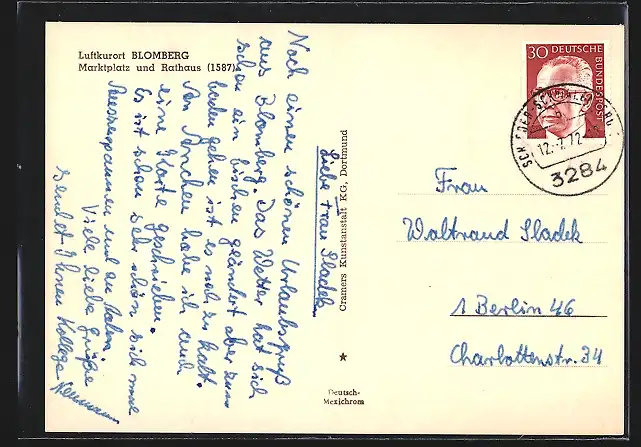 Luftkurort BLOMBERG
Marktplatz und Rathaus (1587)
Liebe Frau Sladek
Noch einen schönen Urlaubsgruß
aus Blomberg. Das Wetter hat sich
schon ein bischen geändert aber zum
baden gehen ist es noch zu kalt.
An Annchen habe ich auch
eine Karte geschrieben.
Es ist schon sehr schön sich mal
auszuspannen und zu
Viele liebe Grüße
sendet Ihnen Kollege Neumann
Cramers Kunstanstalt KG, Dortmund
Deutsch-
Mexichrom
30 DEUTSCHE
BUNDESPOST
SCHIEDER-SCHWALENBERG
12.-7.72
3284
Frau
Waltraud Sladek
1 Berlin 46
Charlottenstr. 34